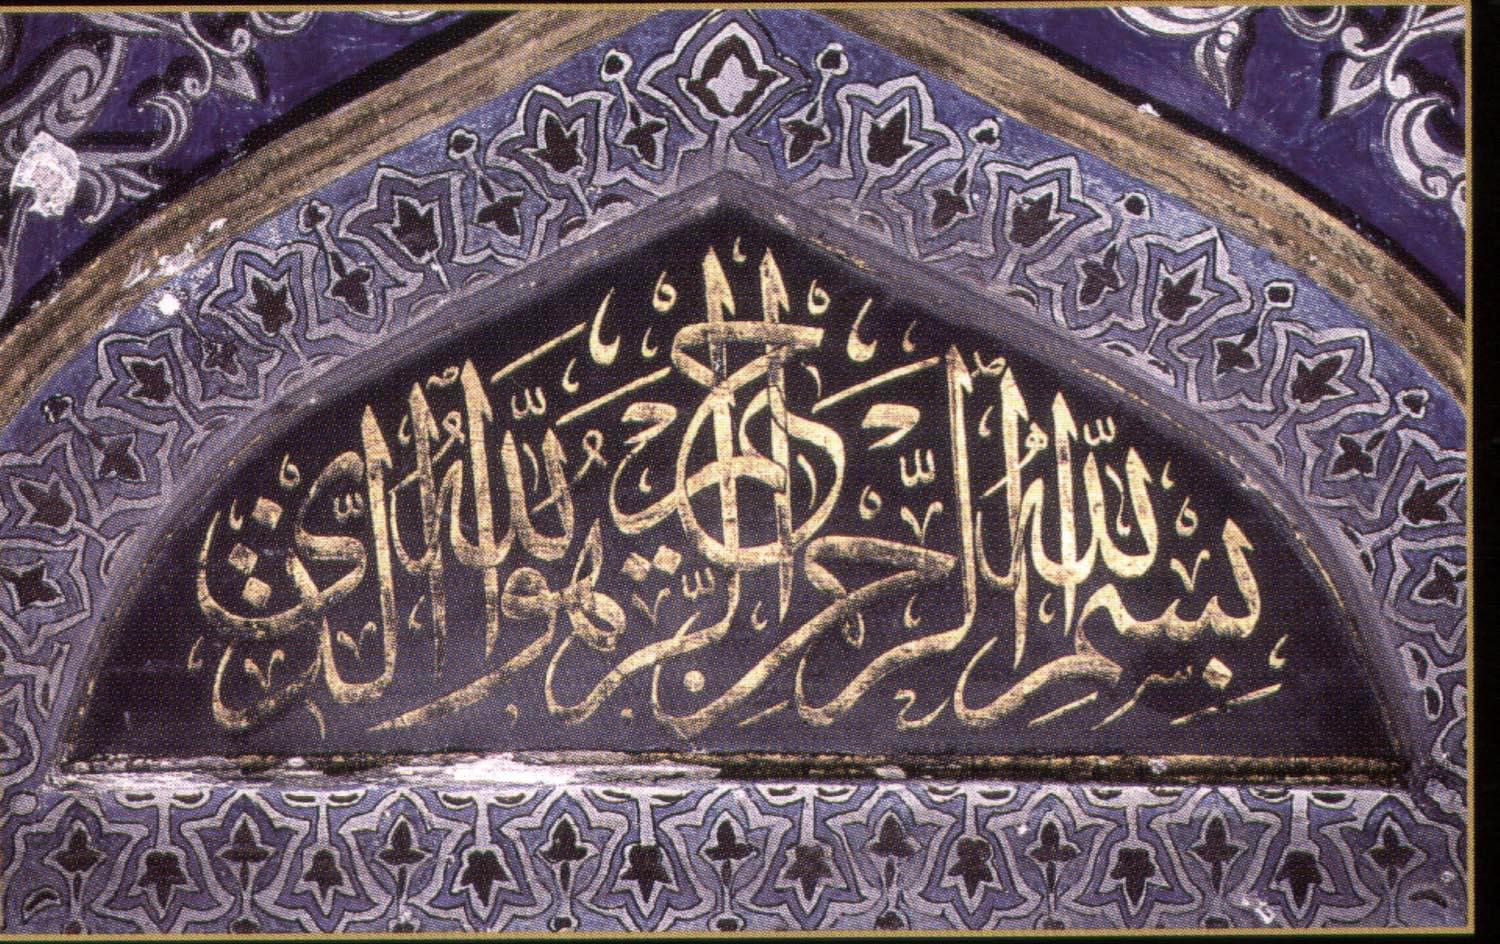 بِسْمِ اللّٰهِ الرَّحْمٰنِ الرَّحِيمِ هُوَ اللّٰهُ الَّذِي